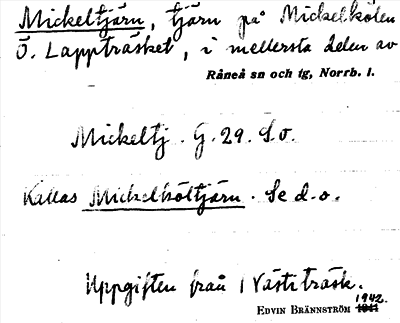 Mickeltjärn, tjärn på Mickelkölen
Ö. Lappträsket, i mellersta delen av
Råneå sn och tg, Norrb. l.
Mickeltj. G. 29. S.o.
Kallas Mickelköltjärn. Se d.o.
Uppgiften från 1 Västiträsk.
1942.
EDVIN BRÄNNSTRÖM 1941